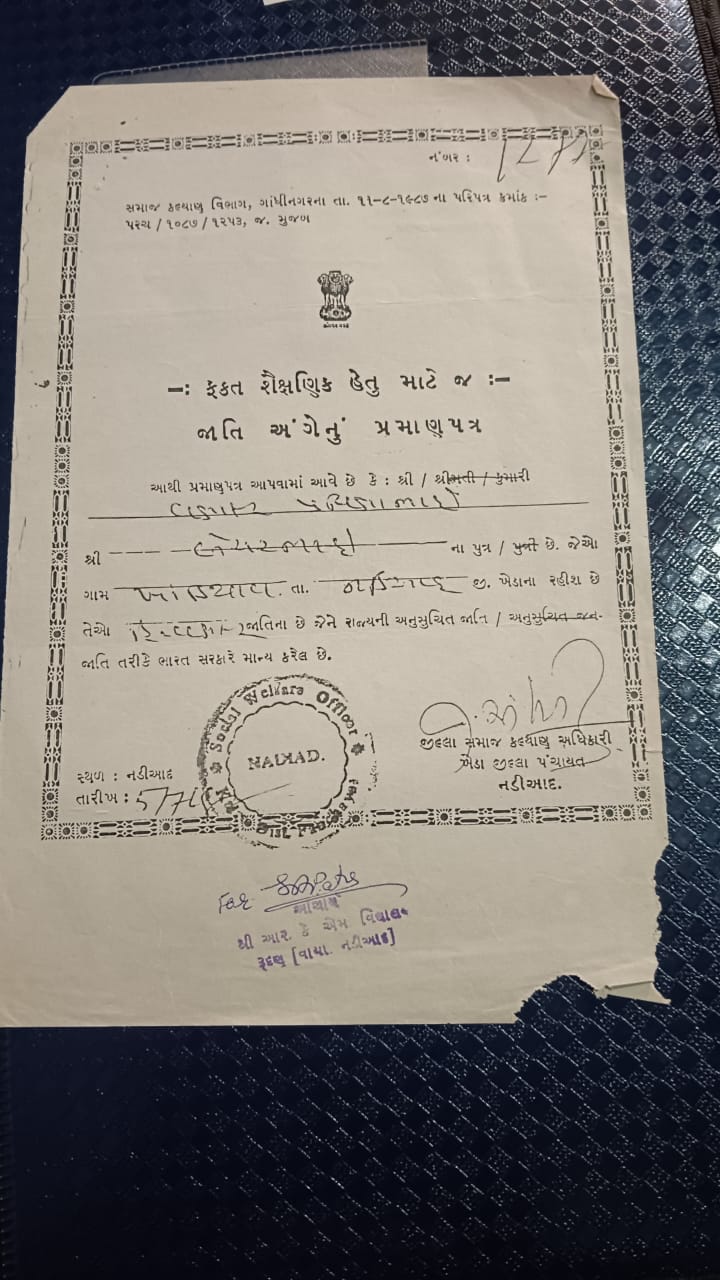 નંબર :
સમાજ કલ્યાણ વિભાગ, ગાંધીનગરના તા. ૧૧-૮-૧૯૮૭ ના પરિપત્ર ક્રમાંક :-
પરચ / ૧૦૮૭ / ૧૨૫૩, જ. મુજબ
-: ફકત શૈક્ષણિક હેતુ માટે જ :-
જાતિ અંગેનું પ્રમાણપત્ર
આથી પ્રમાણપત્ર આપવામાં આવે છે કે : શ્રી / શ્રીમતી / કુમારી
વણકર
શ્રી ના પુત્ર / પુત્રી છે. જેઓ
ગામ તા. નડિયાદ જી. ખેડાના રહીશ છે
તેઓ હિન્દુ વણકર જાતિના છે જેને રાજ્યની અનુસુચિત જાતિ / અનુસુચિત જન-
જાતિ તરીકે ભારત સરકારે માન્ય કરેલ છે.
Social Welfare Officer
NADIAD.
જીલ્લા સમાજ કલ્યાણ અધિકારી
ખેડા જીલ્લા પંચાયત
નડીઆદ.
સ્થળ : નડીઆદ
તારીખ :
For
આચાર્ય
શ્રી આર. કે એમ વિદ્યાલય
રૂદણ [વાયા. નડીઆદ]